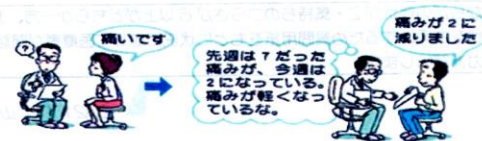 ?
痛いです
先週は7だった
痛みが、今週は
2になっている。
痛みが軽くなっ
ているな。
痛みが2に
減りました